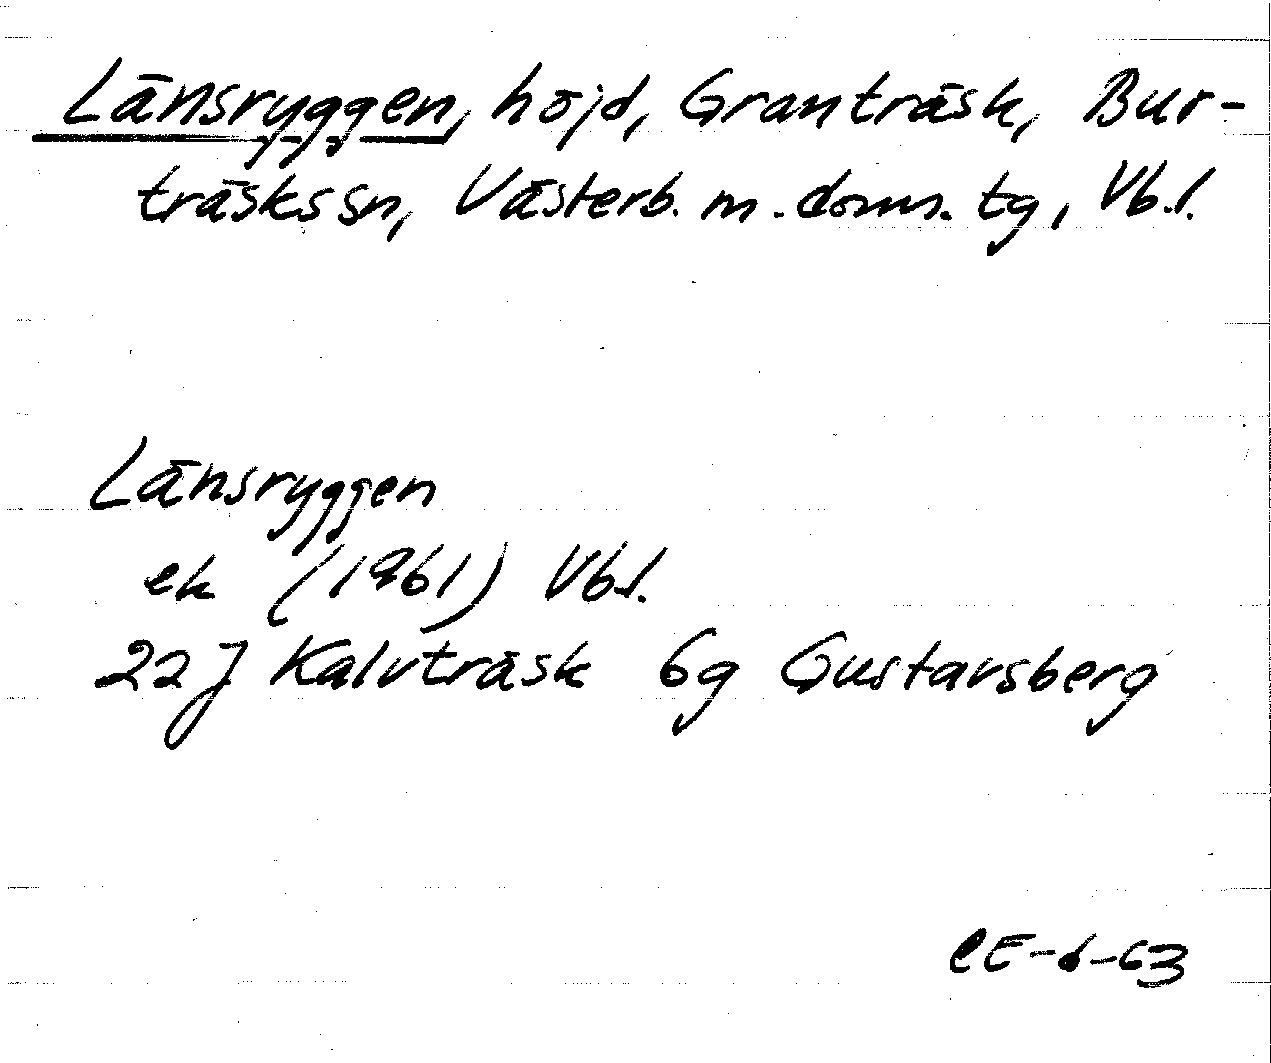 Länsryggen, höjd, Granträsk, Bur-
träsks sn, Västerb. m. dom. tg, Vb.l.
Länsryggen
ek (1961) Vb.l.
22J Kalvträsk 6g Gustavsberg
CE-6-63